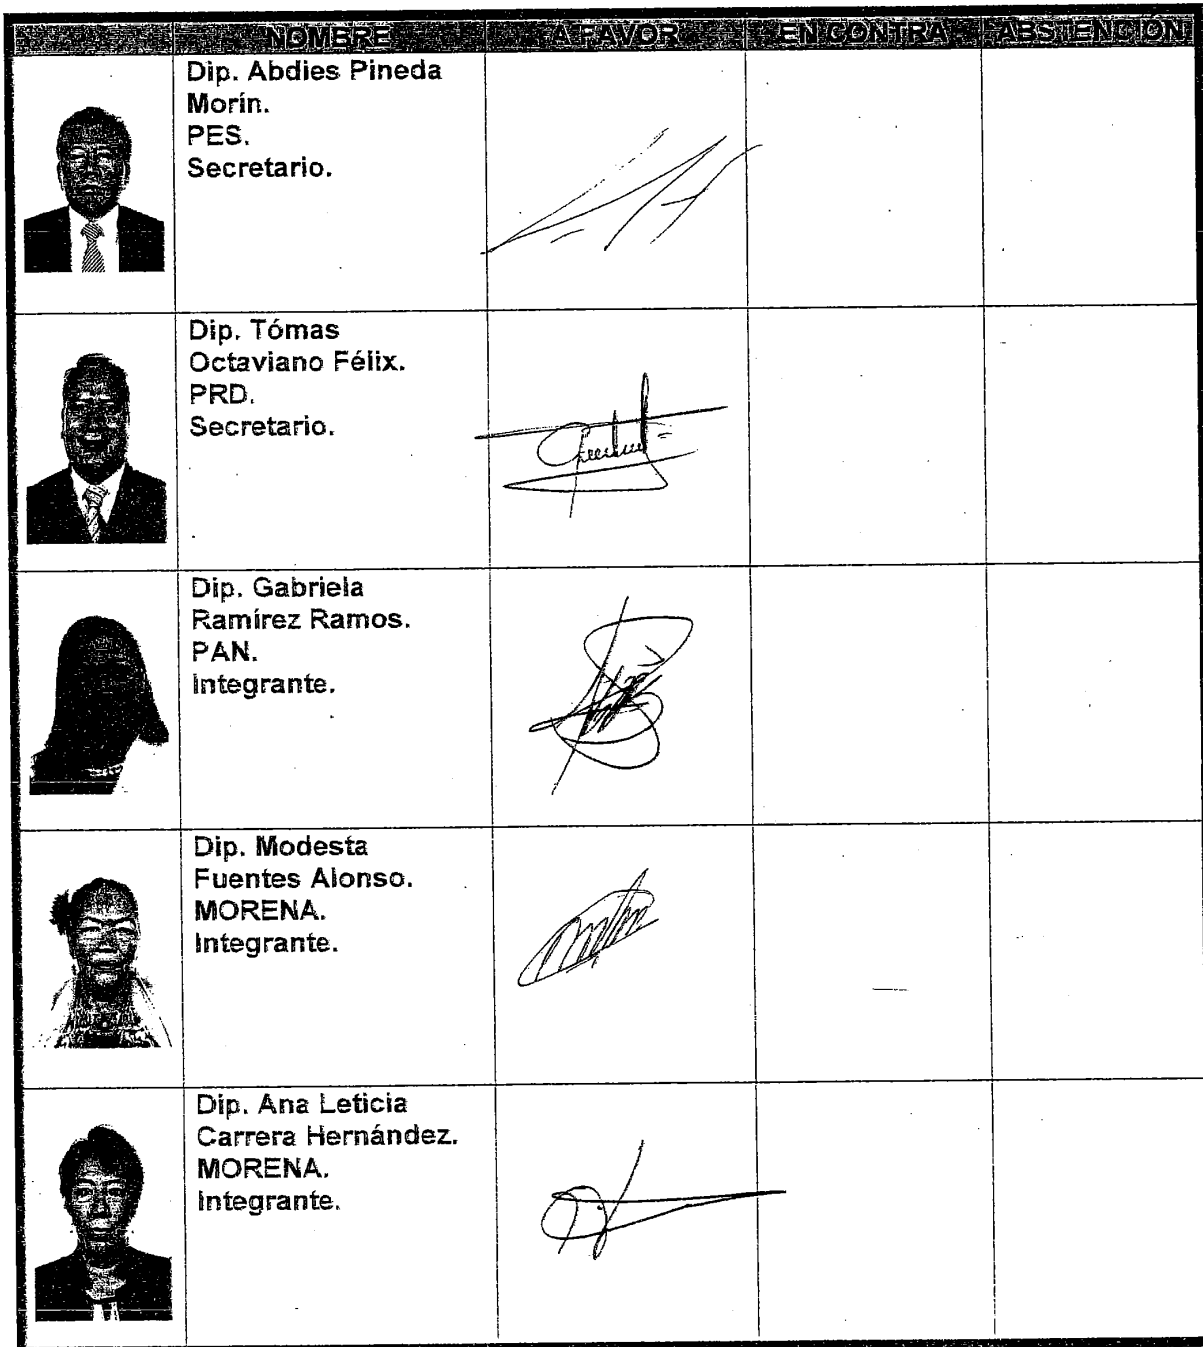 NOMBRE A FAVOR EN CONTRA ABSTENCION
Dip. Abdies Pineda
Morín.
PES.
Secretario.
Dip. Tómas
Octaviano Félix.
PRD.
Secretario.
Dip. Gabriela
Ramírez Ramos.
PAN.
Integrante.
Dip. Modesta
Fuentes Alonso.
MORENA.
Integrante.
Dip. Ana Leticia
Carrera Hernández.
MORENA.
Integrante.